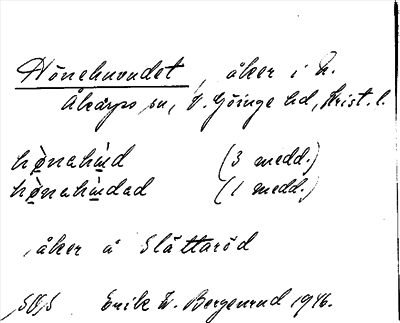 Hönehuvudet, åker i N.
Åkarps sn, V. Göinge hd, Krist. l.
hønahud (3 medd.)
hønahudad (1 medd.)
åker å Slättaröd
Erik W. Bergenrud 1946.